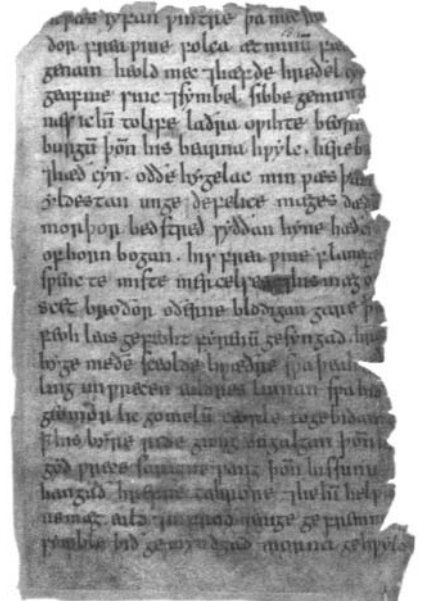 wæs syfan wintre þa mec
dor frea wine folca æt minū fæ
genam heold mec ⁊hæfde hreðel cy
geaf me sinc ⁊symbel sibbe gemun
næs ic hī to life laðra opihte beorn
burgū þoñ his bearna hwylc . here b
⁊hæð cyn . oððe hygelac min wæs þā
yldestan unge defelice mæges dæd
morþor bed stred syððan hyne hæð
of horn bogan . his frea wine flane
swenc te miste mercelses ⁊his mæg o
scet broðor oðerne blodigan gare þ
feoh leas gefeoht fyrenū gesyngad . hre
hyge meðe sceolde hwæðre swa þeah
ling un wrecen ealdres linnan swa bið
geomor lic gomelū ceorle to gebidan
ꝥ his byre ride giong on galgan þoñ
gyd wrece sarigne sang þoñ his sunu
hangað hrefne to hroðre ⁊he hī help
ne mæg . eald ⁊in frod ænige ge fremm
symble bið ge myndgad morna gehwylc